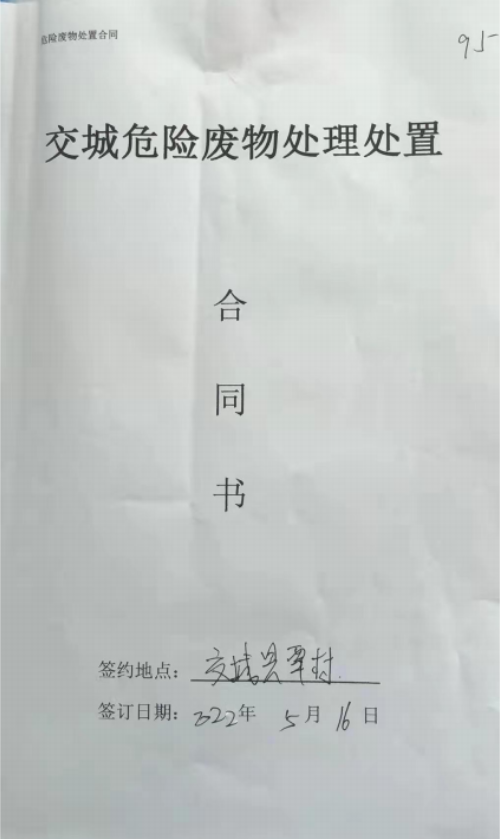 危险废物处置合同
95
交城危险废物处理处置
合
同
书
签约地点：交城县覃村
签订日期：2022年 5月 16日